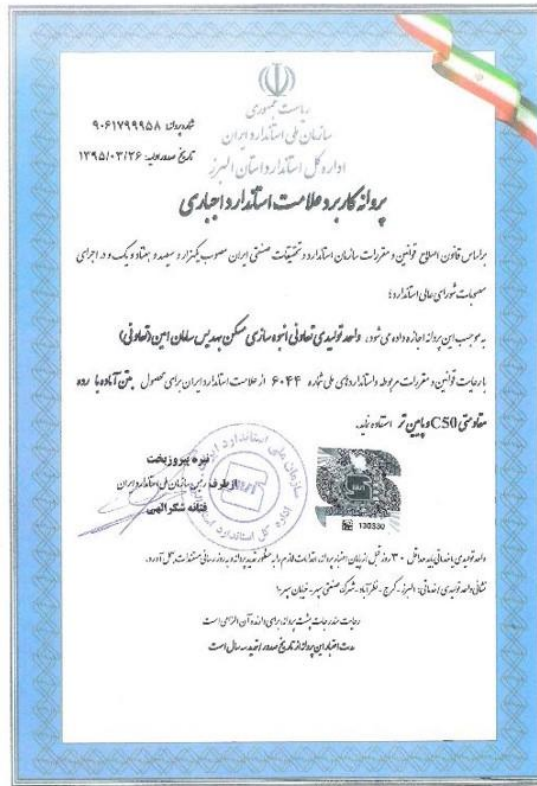 ریاست جمهوری
سازمان ملی استاندارد ایران
اداره کل استاندارد استان البرز
شماره پروانه: ۹۰۶۱۷۹۹۹۵۸
تاریخ صدور اولیه: ۱۳۹۵/۰۳/۲۶
پروانه کاربرد علامت استاندارد اجباری
براساس قانون اصلاح قوانین و مقررات سازمان استاندارد و تحقیقات صنعتی ایران مصوب یکهزار و سیصد و هفتاد و یک و در اجرای
مصوبات شورای عالی استاندارد؛
به موجب این پروانه اجازه داده می شود، واحد تولیدی تعاونی انبوه سازی مسکن بهدیس سامان امین (تعاونی)
با رعایت قوانین و مقررات مربوطه و استانداردهای ملی شماره ۶۰۴۴ از علامت استاندارد ایران برای محصول بتن آماده با رده
مقاومتی C50 و پایین تر استفاده نماید.
نیره پیروزبخت
از طرف رییس سازمان ملی استاندارد ایران
فتانه شکرالهی
130330
واحد تولیدی یا خدماتی باید حداقل ۳۰ روز قبل از پایان اعتبار پروانه، اقدامات لازم را به منظور تمدید پروانه و به روز رسانی مستندات، بعمل آورد.
نشانی واحد تولیدی / خدماتی: البرز - کرج - نظرآباد - شهرک صنعتی سپهر - خیابان سپهر۱۰
رعایت مندرجات پشت پروانه، برای دارنده آن الزامی است
مدت اعتبار این پروانه از تاریخ صدور / تمدید سه سال است